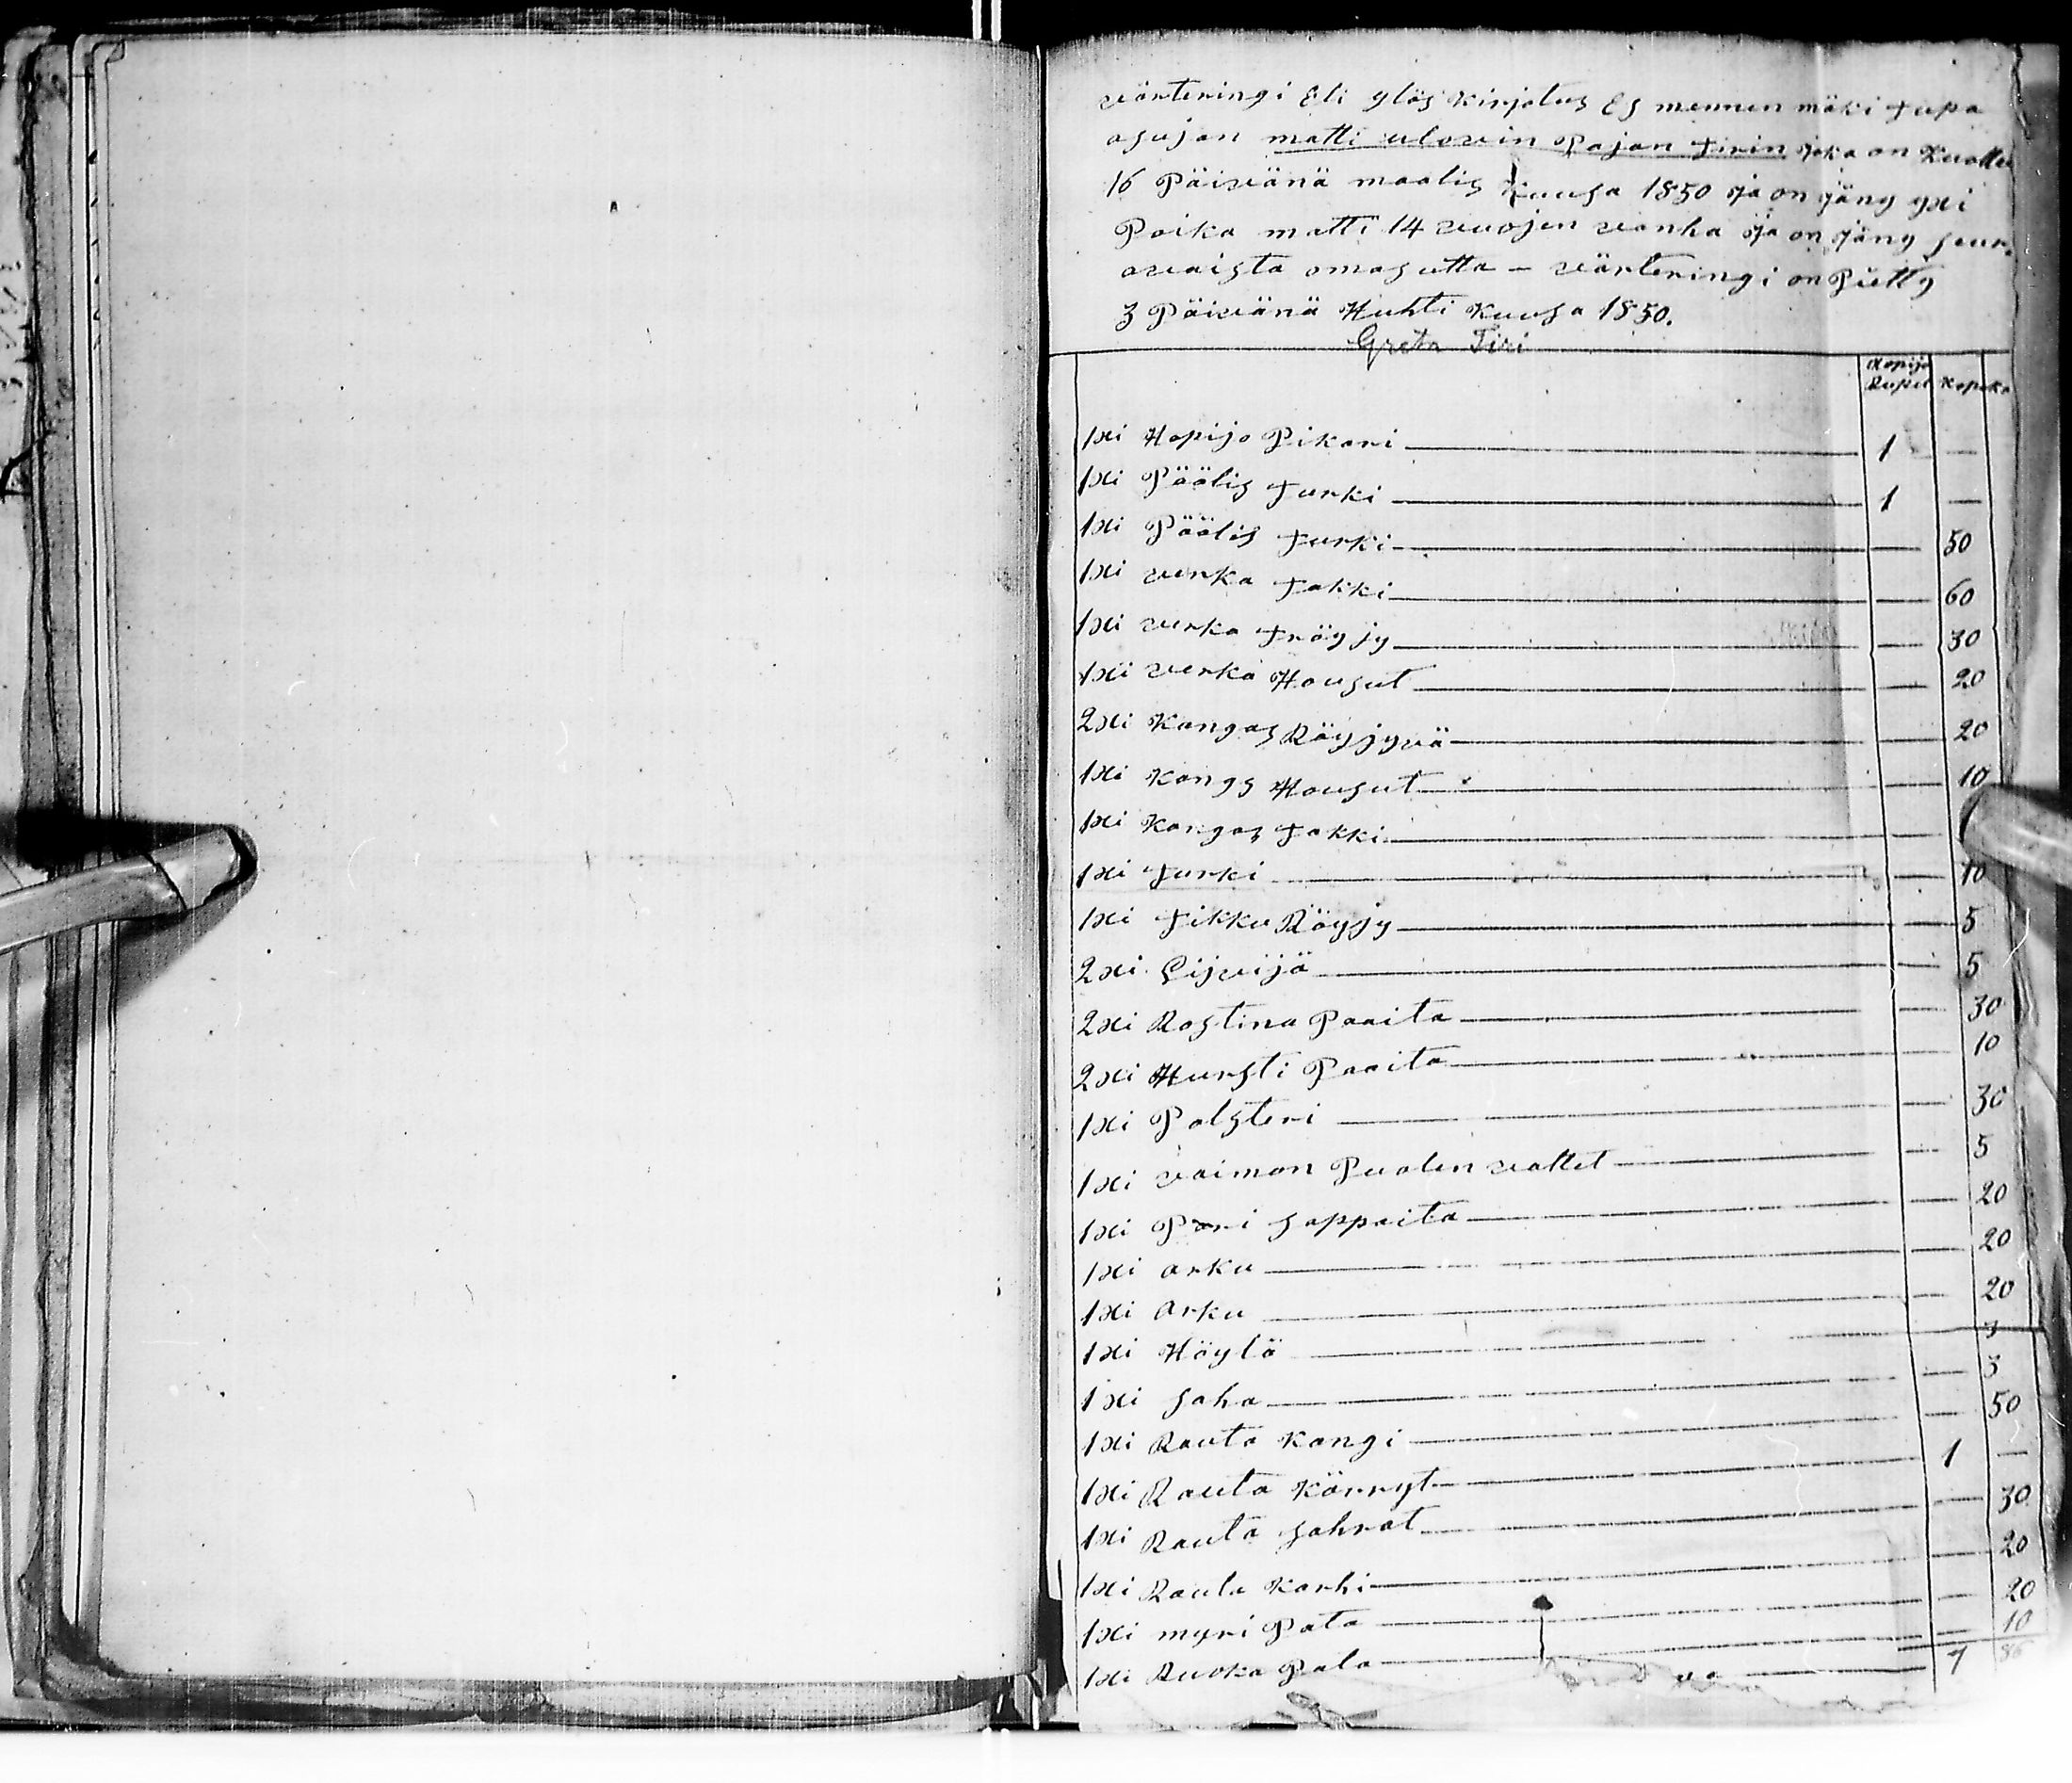 värteringi Eli ylös kirjotus Es mennen mäki tupa
asujan matti ulovin Pajan tirin joka on Kuollu
16 Päivänä maalis Kuusa 1850 ja on jäng yxi
Poika matti 14 vuojen vanha ja on jäng seur,
avaista omasutta – värteringi on Pietty
3 Päivänä Huhti Kuusa 1850.
Greta Tiri
Hopija Rupel Kopeka
1xi Hopijo Pikari 1 —
1xi Päälis turki 1 —
1xi Päälis turki — 50
1xi verka takki — 60
1xi verka tröyjy — 30
1xi verka Housut — 20
2xi Kangas Röyjyvä — 20
1xi Kangs Housut — 10
1xi Kangas takki —
1xi turki — 10
1xi tikku Röyjy — 5
2xi Lijvijä — 5
2xi Rostina Paaita — 30
2xi Hursti Paaita — 10
1xi Palsteri — 30
1xi vaimon Puolen vattet — 5
1xi Pari sappaita — 20
1xi arku — 20
1xi arku — 20
1xi Höylä — 3
1xi saha — 3
1xi Rauta kangi — 50
1xi Rauta Kärryt 1 —
1xi Rauta sahrat — 30
1xi Rauta Karhi — 20
1xi myri Pata — 20
1xi Ruoka Pala — 10
7 86